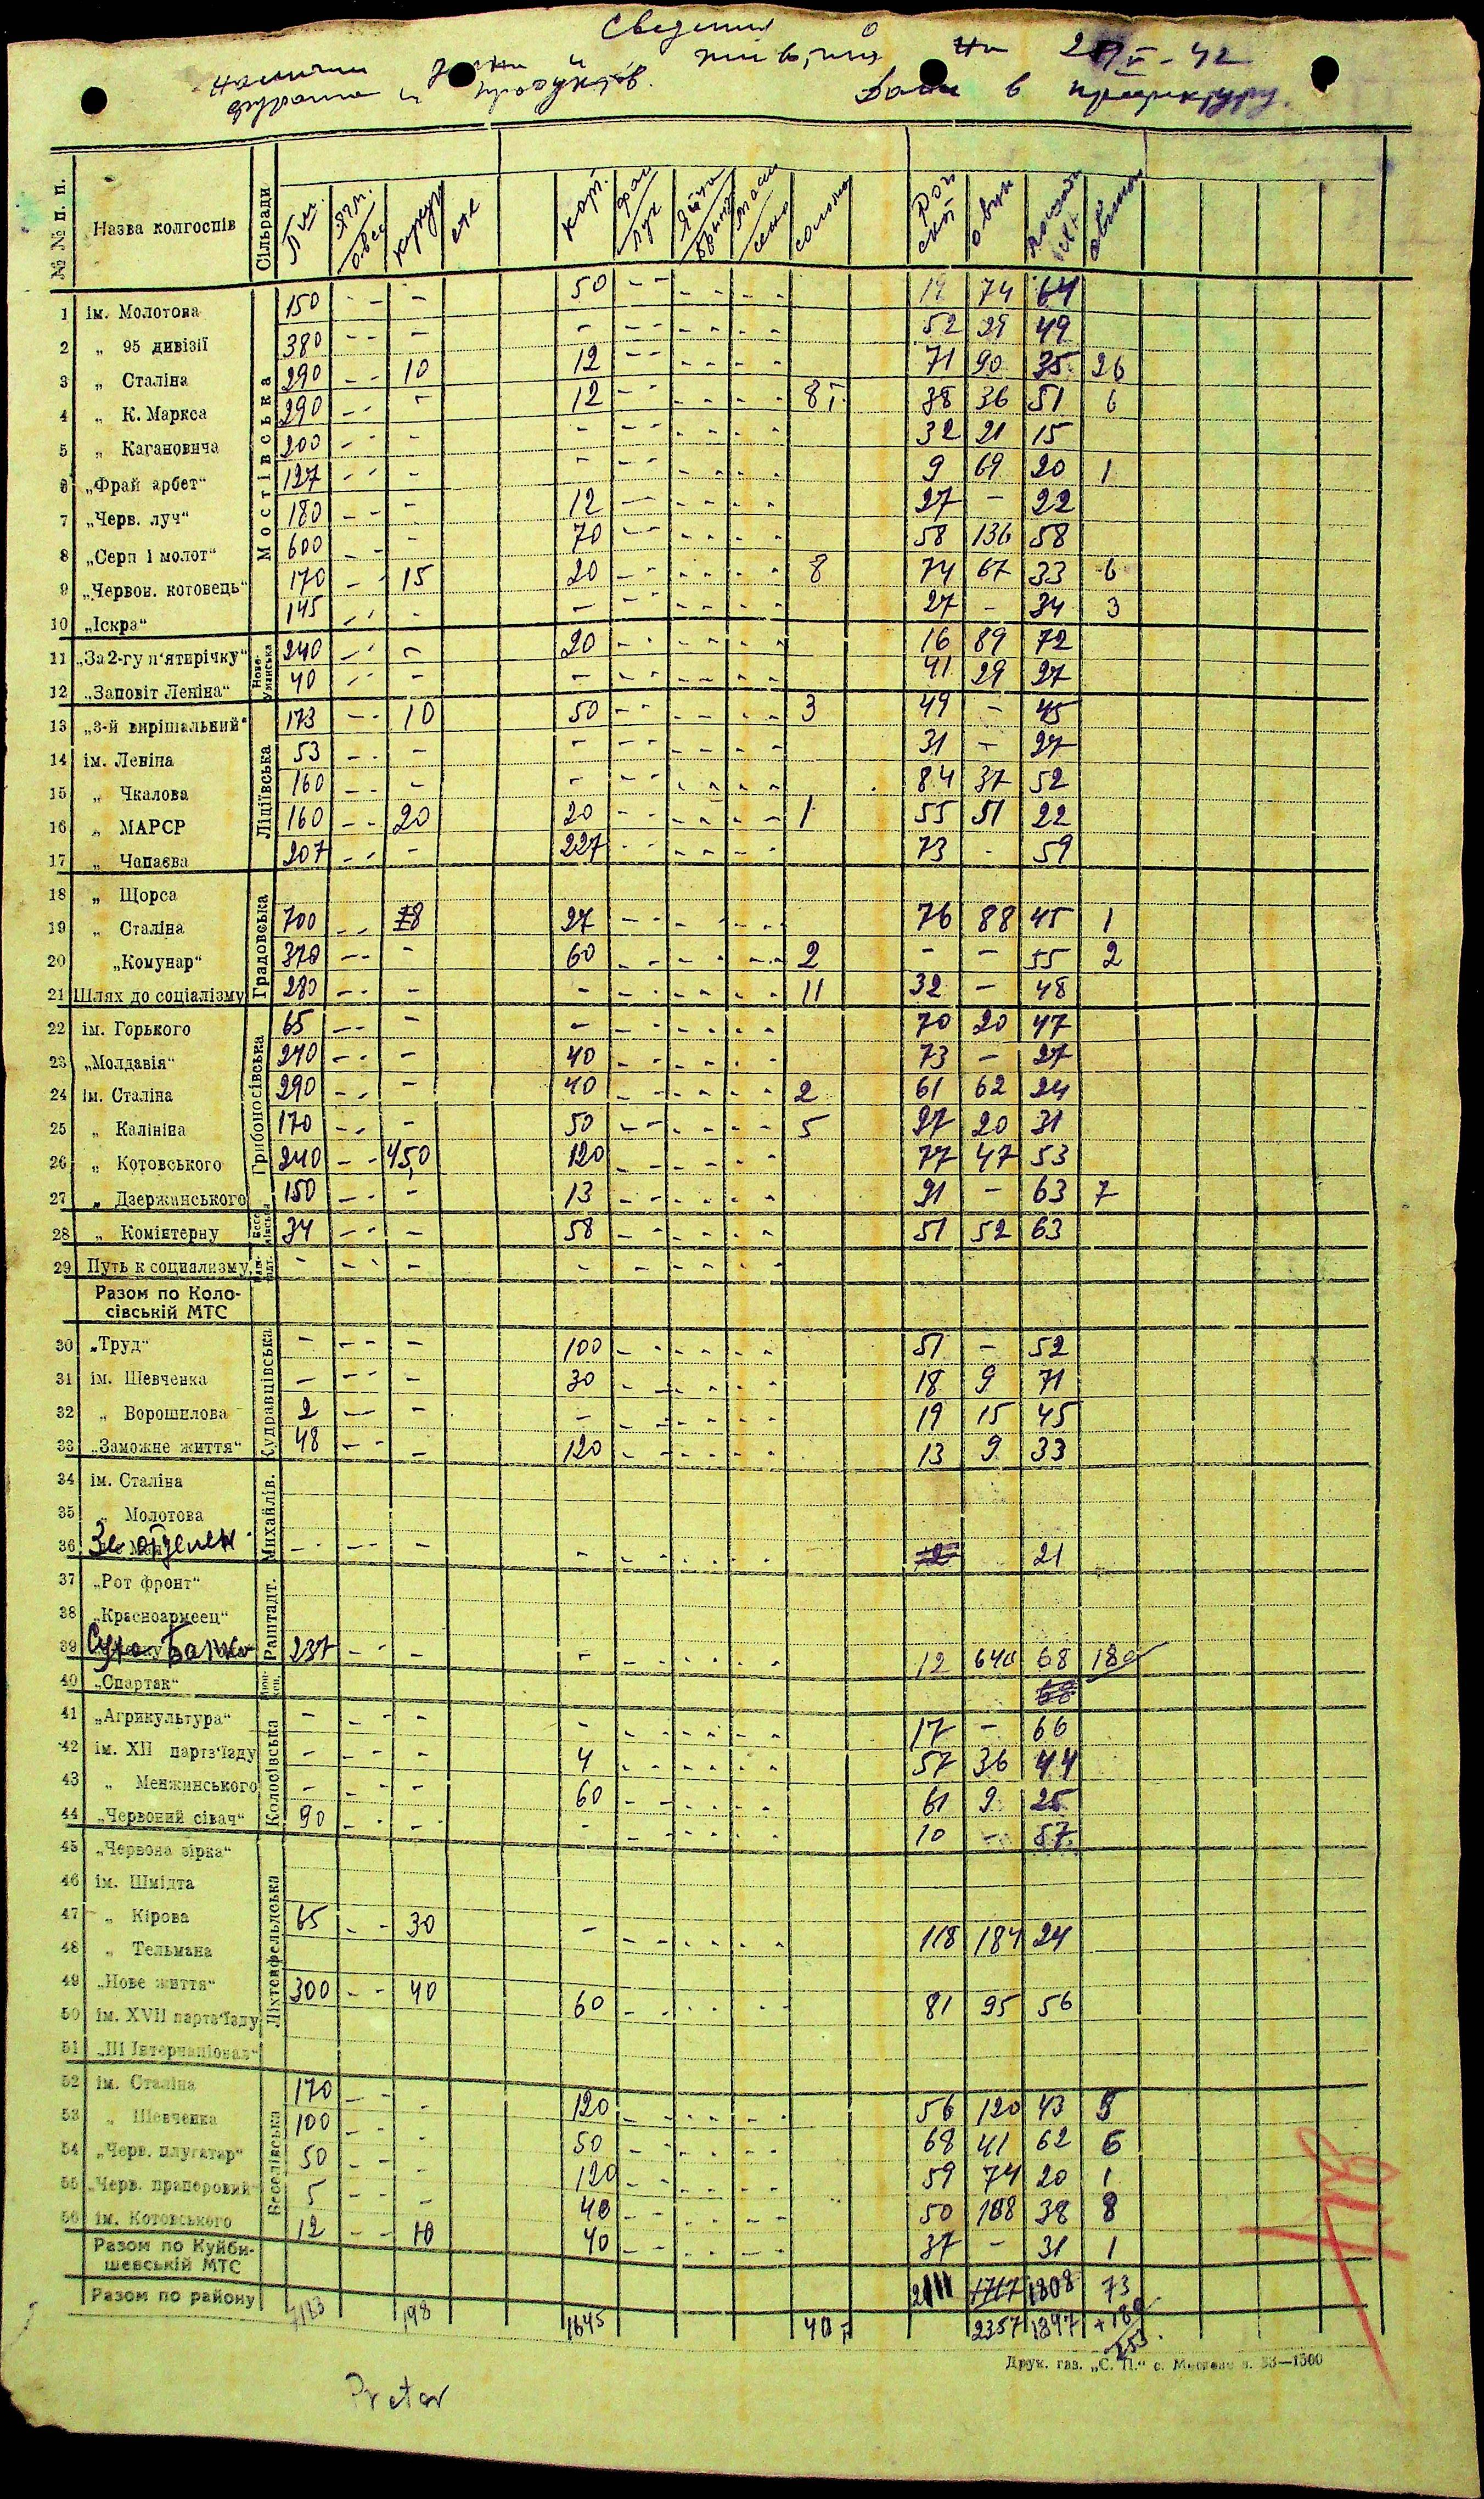 Сведения
наличии и на 2 V-42
фуража и продуктов. Дали в префектуру.
№№ п. п. Назва колгоспів Сільради Пш. Ячм. овес кукур карт. фас лук Яйца брынз Масло сено солома Рог скот овцы лошади
1 ім. Молотова 150 - - - 50 - - - - - - 19 74 64
2 „ 95 дивізії 380 - - - - - - - - - - 52 29 49
3 „ Сталіна 290 - - 10 12 - - - - - - 71 90 35 26
4 „ К. Маркса 290 - - - 12 - - - - - - 8т 38 36 51 6
5 „ Кагановича 200 - - - - - - - - - - 32 21 15
6 „Фрай арбет“ 127 - - - - - - - - - - 9 69 20 1
7 „Черв. луч“ 180 - - - 12 - - - - - - 27 - 22
8 „Серп і молот“ 600 - - - 70 - - - - - - 58 136 58
9 „Червон. котовець“ 170 - - 15 20 - - - - - - 8 74 67 33 6
10 „Іскра“ 145 - - - - - - - - - - 27 - 34 3
Мостівська
11 „За 2-гу п'ятирічку“ 240 - - - 20 - - - - - - 16 89 72
12 „Заповіт Леніна“ 40 - - - - - - - - - - 41 29 27
Ново-Уманська
13 „3-й вирішальний“ 173 - - 10 50 - - - - - - 3 49 - 45
14 ім. Леніна 53 - - - - - - - - - - 31 - 27
15 „ Чкалова 160 - - - - - - - - - - 84 37 52
16 „ МАРСР 160 - - 20 20 - - - - - - 1 55 51 22
17 „ Чапаєва 207 - - - 227 - - - - - - 73 - 59
Ліціївська
18 „ Щорса
19 „ Сталіна 700 - - 18 27 - - - - - - 76 88 45 1
20 „Комунар“ 370 - - - 60 - - - - - - 2 - - 55 2
21 Шлях до соціалізму 280 - - - - - - - - - - 11 32 - 48
Градовська
22 ім. Горького 65 - - - - - - - - - - 70 20 47
23 „Молдавія“ 240 - - - 40 - - - - - - 73 - 27
24 ім. Сталіна 290 - - - 40 - - - - - - 2 61 62 24
25 „ Калініна 170 - - - 50 - - - - - - 5 27 20 31
26 „ Котовського 240 - - 45,0 120 - - - - - - 77 47 53
27 „ Дзержинського 150 - - - 13 - - - - - - 91 - 63 7
Грибоносівська
28 „ Комінтерну 34 - - - 58 - - - - - - 51 52 63
29 Путь к социализму - - - - - - - - - - -
Разом по Коло-
сівській МТС
30 „Труд“ - - - - 100 - - - - - - 51 - 52
31 ім. Шевченка - - - - 30 - - - - - - 18 9 71
32 „ Ворошилова 2 - - - - - - - - - - 19 15 45
33 „Заможне життя“ 48 - - - 120 - - - - - - 13 9 33
Кудравцівська
34 ім. Сталіна
35 „ Молотова
36 3е отделен - - - - - - - - - - - 21
Михайлів.
37 „Рот фронт“
38 „Красноармеец“
39 Сухо Балка 237 - - - - - - - - - - 12 640 68 180
Раштадт.
40 „Спартак“ 68
41 „Агрикультура“ - - - - - - - - - - - 17 - 66
42 ім. XII партз'їзду - - - - 4 - - - - - - 57 36 44
43 „ Менжинського - - - - 60 - - - - - - 61 9 25
44 „Червоний сівач“ 90 - - - - - - - - - - 10 - 57
Колосівська
45 „Червона зірка“
46 ім. Шмідта
47 „ Кірова 65 - - 30 - - - - - - - 118 184 24
48 „ Тельмана
49 „Нове життя“ 300 - - 40 60 - - - - - - 81 95 56
50 ім. XVII партз'їзду
51 „III Інтернаціонал“
Ліхтенфельдська
52 ім. Сталіна 170 - - - 120 - - - - - - 56 120 43 5
53 „ Шевченка 100 - - - 50 - - - - - - 68 41 62 6
54 „Черв. плугатар“ 50 - - - 120 - - - - - - 59 74 20 1
55 „Черв. прапоровий“ 5 - - - 40 - - - - - - 50 108 38 8
56 ім. Котовського 12 - - 10 40 - - - - - - 37 - 31 1
Веселівська
Разом по Куйби-
шевській МТС
2111 1717 1808 73
Разом по району 7123 198 1645 40 т 2357 1897 +180
253
Друк. газ. „С. П.“ с. Мостове з. 33—1500
Pretor